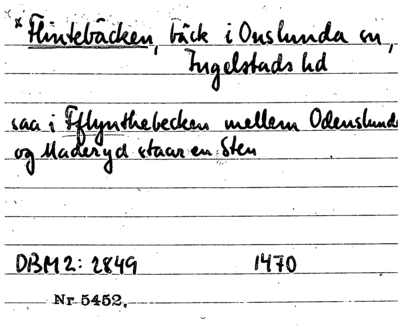 * Flintebäcken, bäck i Onslunda sn,
Ingelstads hd
saa i Fflynthebecken mellem Odenslunde
og Maderyd staar en Sten
DBM 2: 2849 1470
Nr 5452.